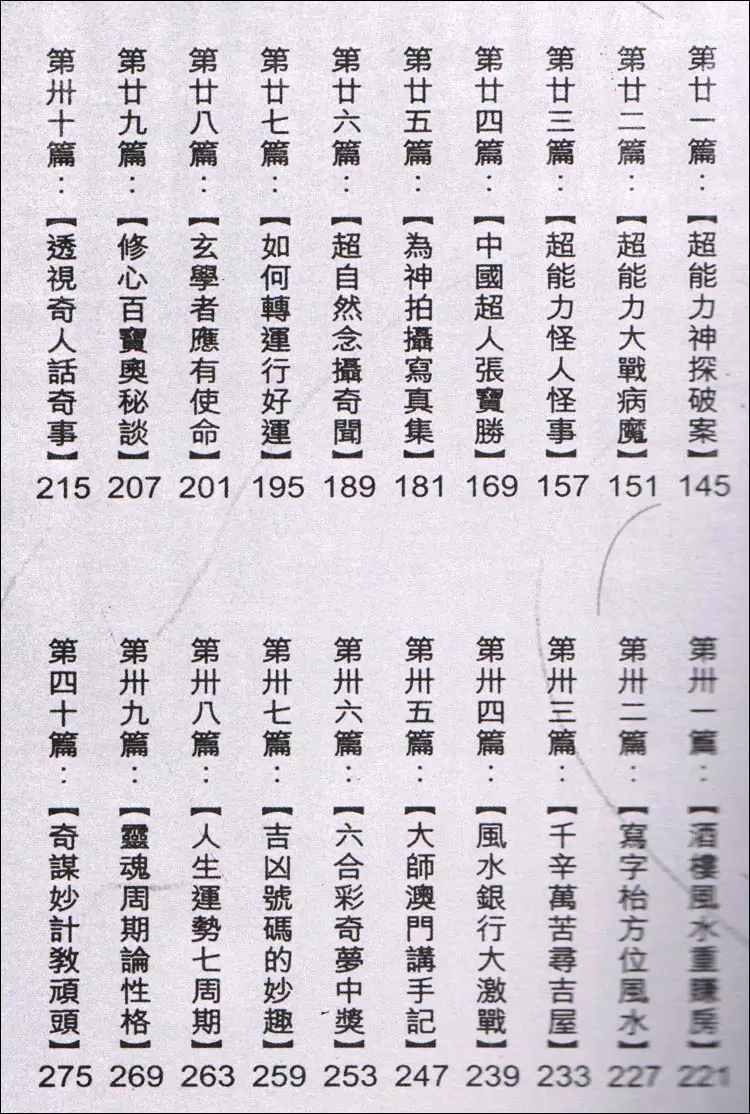 第廿一篇：【超能力神探破案】145
第廿二篇：【超能力大戰病魔】151
第廿三篇：【超能力怪人怪事】157
第廿四篇：【中國超人張寶勝】169
第廿五篇：【為神拍攝寫真集】181
第廿六篇：【超自然念攝奇聞】189
第廿七篇：【如何轉運行好運】195
第廿八篇：【玄學者應有使命】201
第廿九篇：【修心百寶奧秘談】207
第卅十篇：【透視奇人話奇事】215
第卅一篇：【酒樓風水重房】221
第卅二篇：【寫字枱方位風水】227
第卅三篇：【千辛萬苦尋吉屋】233
第卅四篇：【風水銀行大激戰】239
第卅五篇：【大師澳門講手記】247
第卅六篇：【六合彩奇夢中獎】253
第卅七篇：【吉凶號碼的妙趣】259
第卅八篇：【人生運勢七周期】263
第卅九篇：【靈魂周期論性格】269
第四十篇：【奇謀妙計教頑頭】275